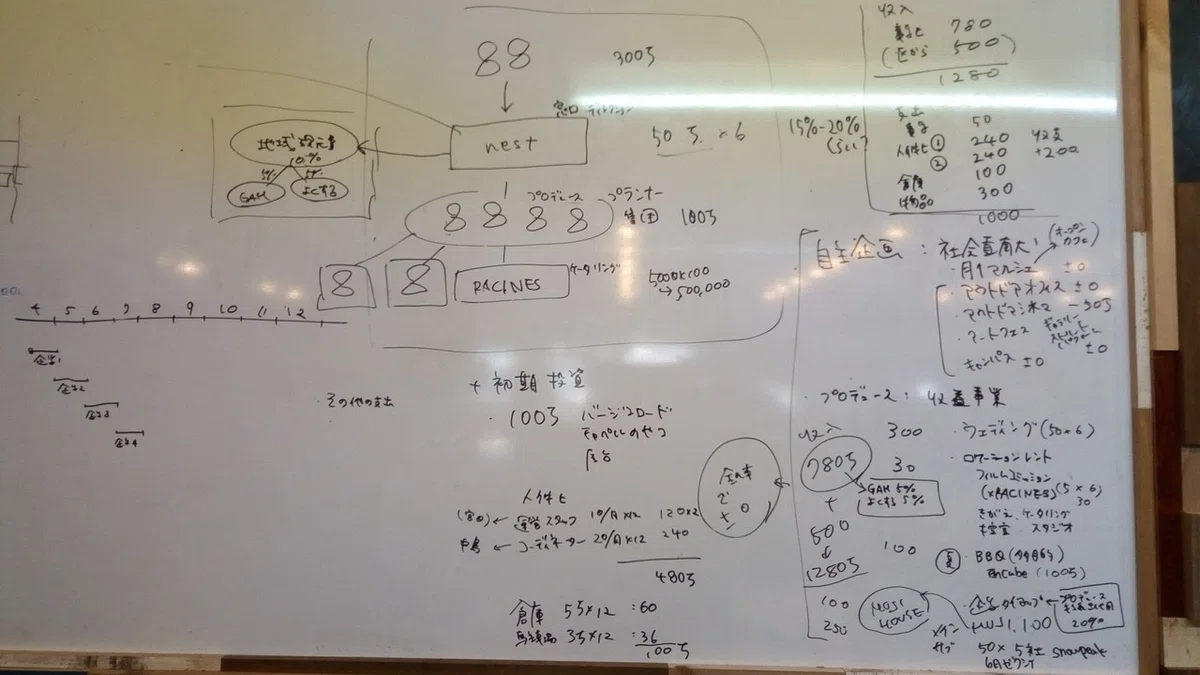 88
300万
窓口 ディレクション
nest
50万 × 6
15%-20%
(らい)
地域還元率
10%
5%
5%
GAM
よくする
プロデース
プランナー
8 8 8 8
集団
100万
8
8
RACINES
ケータリング
5000×100
→500,000
4 5 6 7 8 9 10 11 12
企画1
企画2
企画3
企画4
・その他の支出
+ 初期投資
・100万
バージンロード
屋台
人件費
運営スタッフ 10/月×12 120×2
← コーディネーター 20/月×12 240
480万
倉庫 5万×12 :60
3万×12 :36
100万
全体で
±0
収入
780
(区から 500)
1280
支出
50
人件費① 240
② 240
倉庫 100
備品 300
1000
収支
+200
自主企画 :
(オープンカフェ)
・月1マルシェ ±0
・アウトドアオフィス ±0
・アウトドアシネマ -50万
・アートフェス
ギャラリー
±0
・キャンパス ±0
・プロデース : 収益事業
収入
780万
+
500
↓
1280万
300
・ウェディング (50×6)
30
・ロケーションレント
フィルムコミッション
(×RACINES) (5×6)
30
GAM 5%
よくする 5%
きがえ、ケータリング
控室 スタジオ
100
夏
・BBQ
(100万)
100
250
MUJI
HOUSE
・企業タイアップ
プロデース
20%
メイン
MUJI, 100
サブ
50×5社 snowpeak